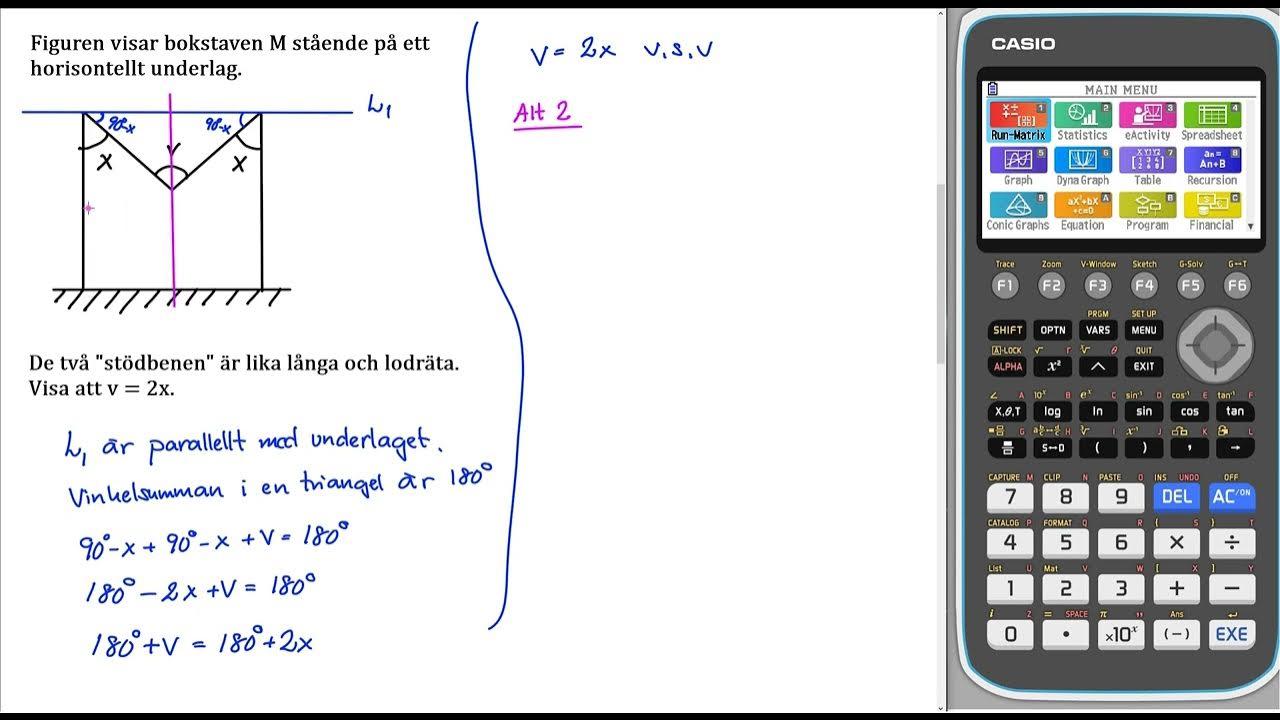 Figuren visar bokstaven M stående på ett
horisontellt underlag.
L₁
90-x
90-x
x
x
De två "stödbenen" är lika långa och lodräta.
Visa att v = 2x.
L₁ är parallellt med underlaget.
Vinkelsumman i en triangel är 180°
90°-x + 90°-x + v = 180°
180° - 2x + v = 180°
180° + v = 180° + 2x
v = 2x v.s.v
Alt 2
CASIO
MAIN MENU
Run-Matrix Statistics eActivity Spreadsheet
Graph Dyna Graph Table Recursion
Conic Graphs Equation Program Financial
Trace Zoom V-Window Sketch G-Solv G↔T
F1 F2 F3 F4 F5 F6
PRGM SET UP
SHIFT OPTN VARS MENU
A-LOCK √ r ∛ θ QUIT
ALPHA x² ^ EXIT
∠ A 10ˣ B eˣ C sin⁻¹ D cos⁻¹ E tan⁻¹ F
X,θ,T log ln sin cos tan
G H I x⁻¹ J K L
S↔D ( ) , →
CAPTURE M CLIP N PASTE O INS UNDO OFF
7 8 9 DEL AC/ON
CATALOG P FORMAT Q R { S } T
4 5 6 × ÷
List U Mat V W [ X ] Y
1 2 3 + −
i Z = SPACE π " Ans ↵
0 • ×10ˣ (−) EXE